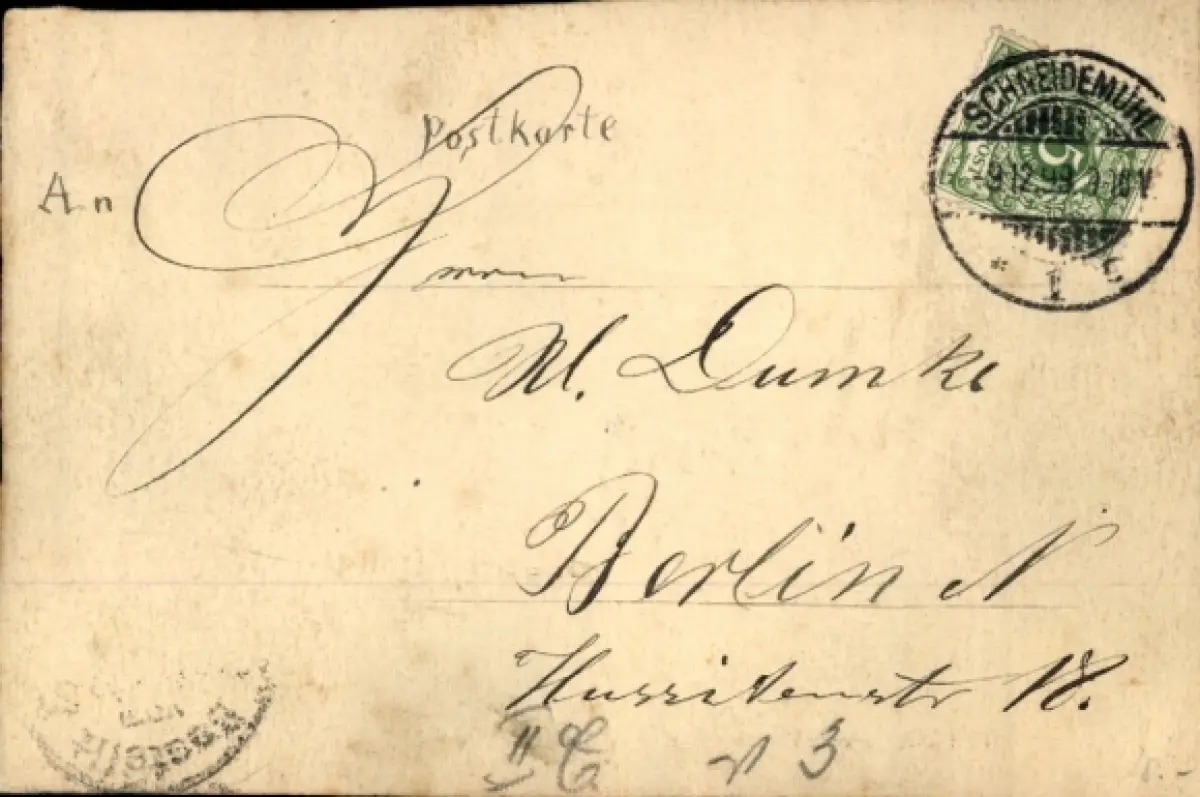 Postkarte
An
Herrn
W. Dumke
Berlin N
Hussitenstr 18.
II
3
SCHNEIDEMÜHL
5
9.12.99. 7-10 V.
* 1 c